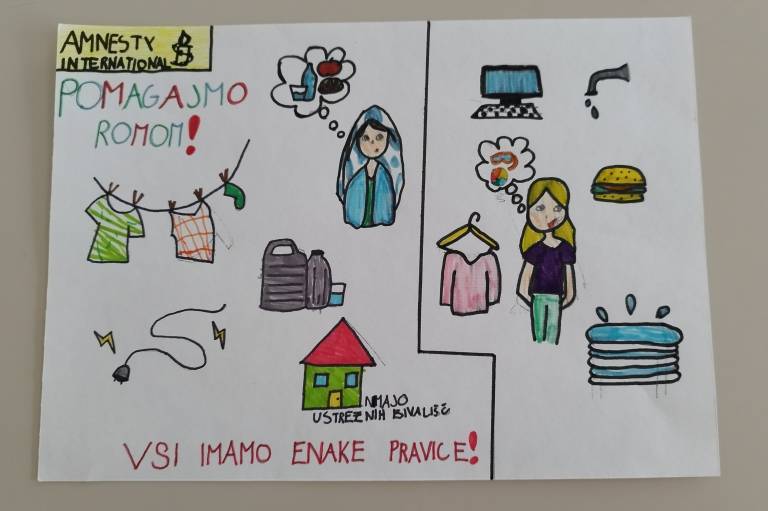 AMNESTY
INTERNATIONAL
POMAGAJMO
ROMOM!
NIMAJO
USTREZNIH BIVALIŠČ
VSI IMAMO ENAKE PRAVICE!